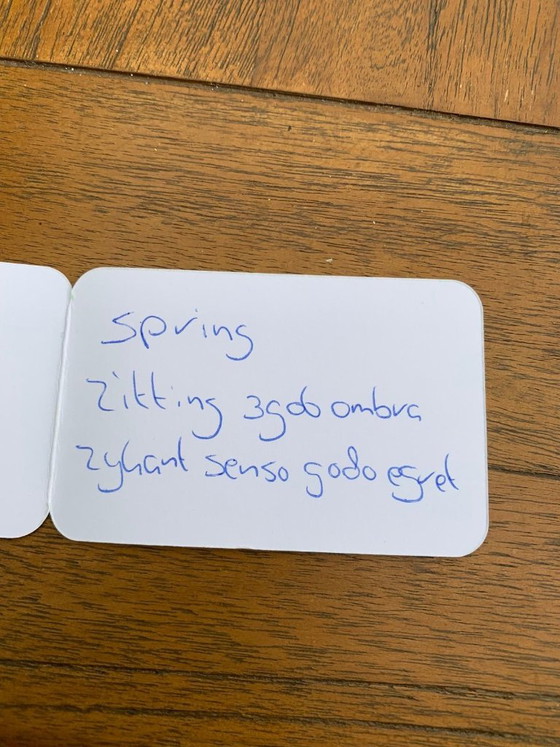 spring
zitting 3godo ombra
zyhant senso godo egret